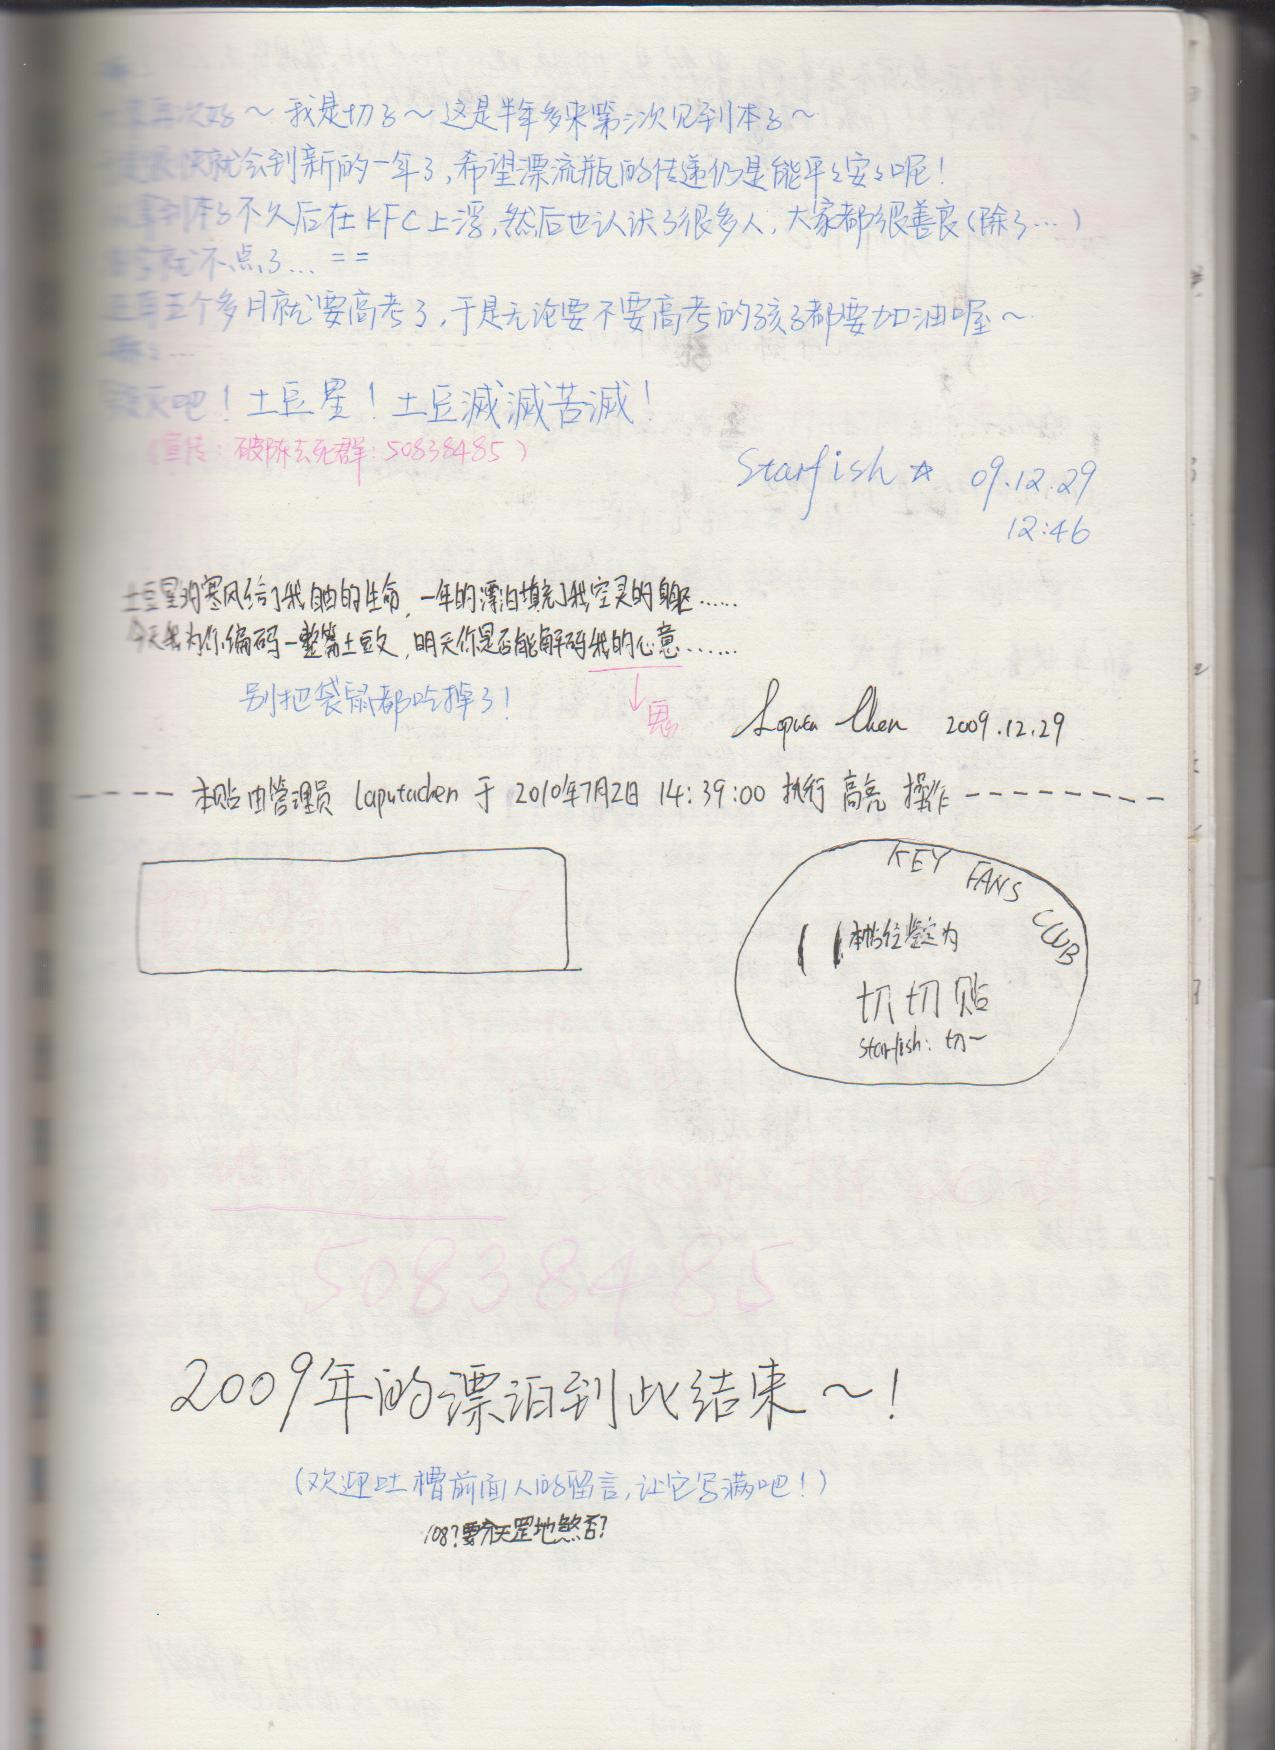 再次好～ 我是切了～ 这是半年多来第二次见到本了～
很快就会到新的一年了，希望漂流瓶的传递仍是能平々安々呢！
拿到本了不久后在KFC上浮，然后也认识了很多人，大家都很善良（除了…）
就不点了… = =
还有五个多月就要高考了，于是无论要不要高考的孩子都要加油喔～
灭吧！土豆星！土豆滅滅苦滅！
（宣传：破陈去死群：50838485）
Starfish ☆ 09.12.29
12:46
土豆星的寒风给了我自由的生命，一年的漂泊填充了我空灵的身躯……
今天我为你编码一整篇土豆文，明天你是否能解码我的心意……
别把袋鼠都吃掉了！
Laputa Chen 2009.12.29
---- 本贴由管理员 laputachen 于 2010年7月2日 14:39:00 执行 高亮 操作 --------
KEY FANS CLUB
本帖被鉴定为
切切贴
starfish: 切一
50838485
2009年的漂泊到此结束～！
（欢迎吐槽前面人的留言，让它写满吧！）
108?要充天罡地煞否?